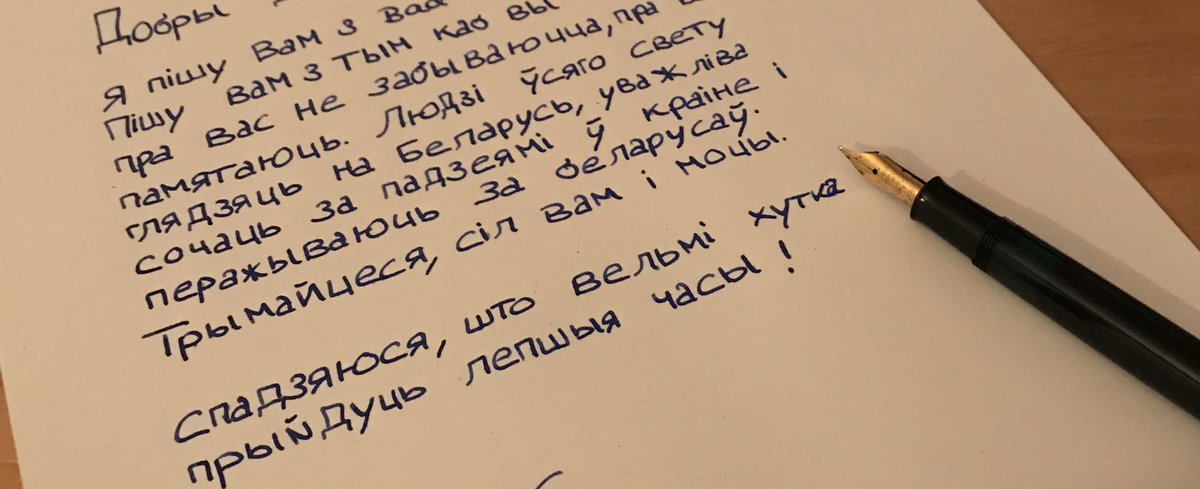 Добры
Я пішу Вам з
Пішу Вам з тым каб вы
пра вас не забываюцца, пра
памятаюць. Людзі ўсяго свету
глядзяць на Беларусь, уважліва
сочаць за падзеямі ў краіне і
перажываюць за беларусаў.
Трымайцеся, сіл вам і моцы.
Спадзяюся, што вельмі хутка
прыйдуць лепшыя часы!